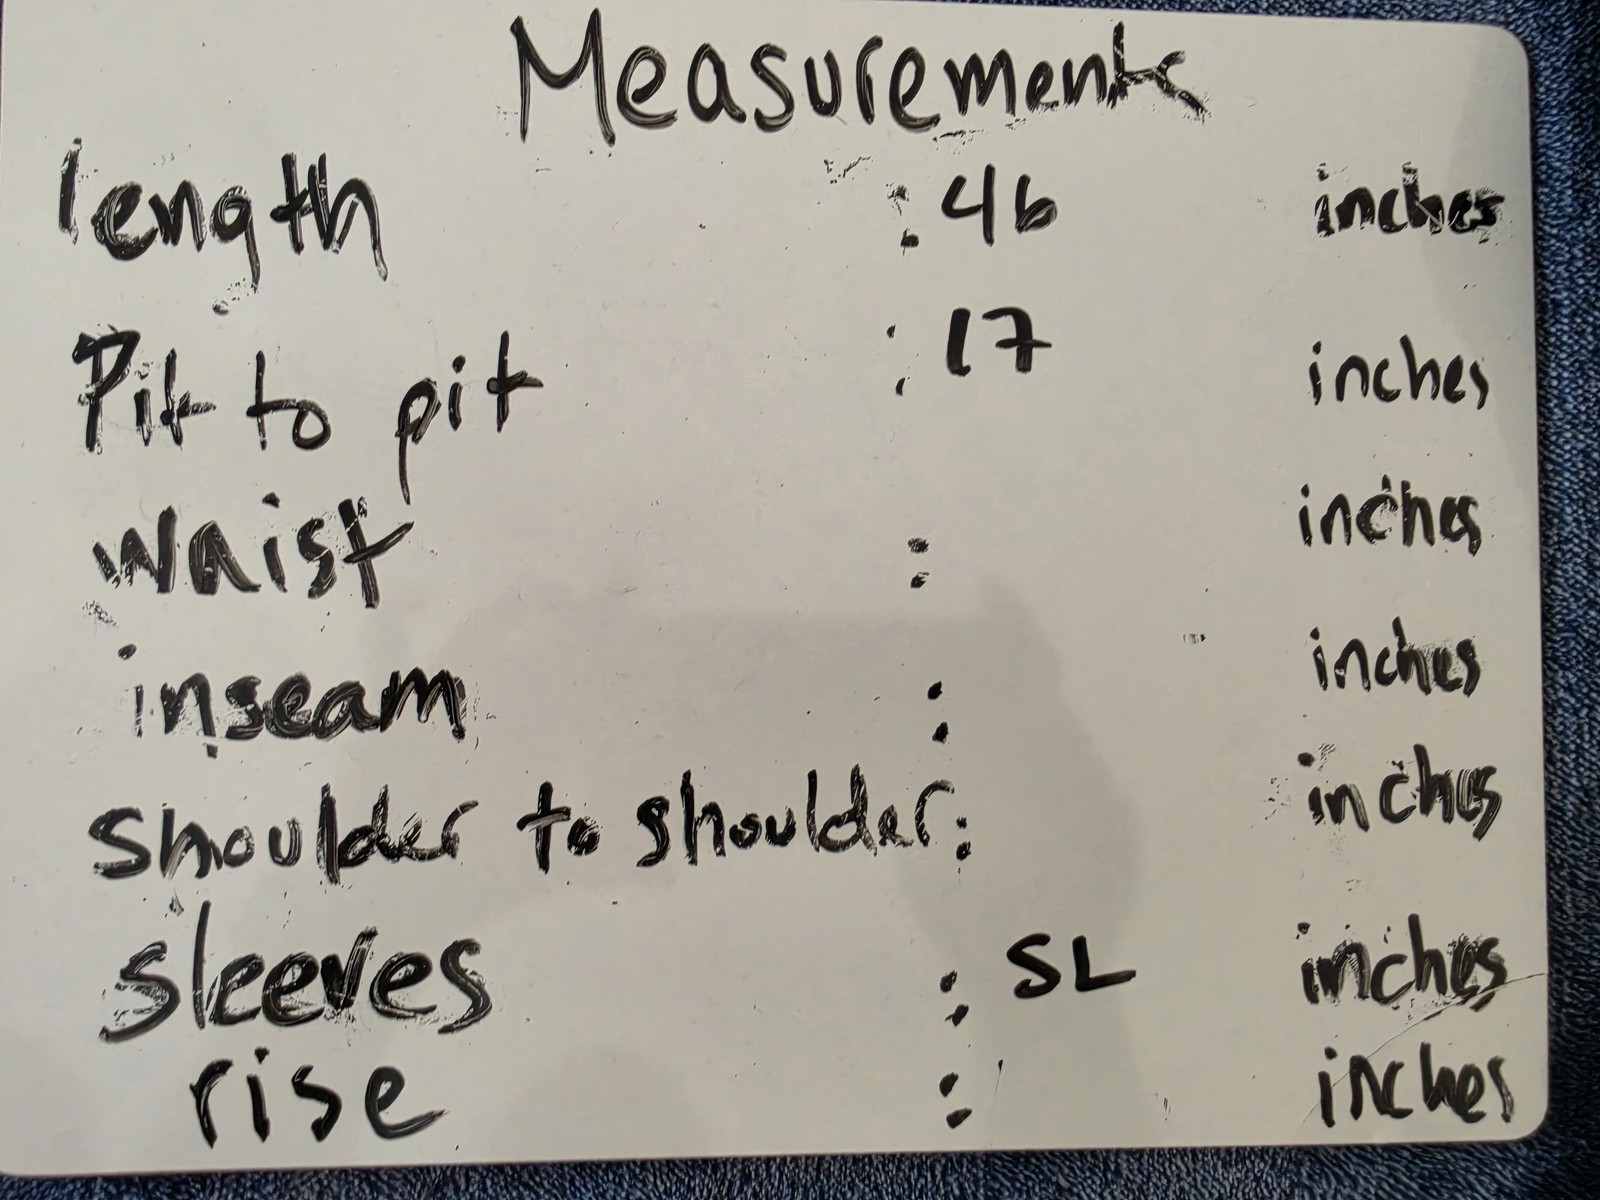 Measurements
length : 46 inches
Pit to pit : 17 inches
waist : inches
inseam : inches
shoulder to shoulder : inches
sleeves : SL inches
rise : inches